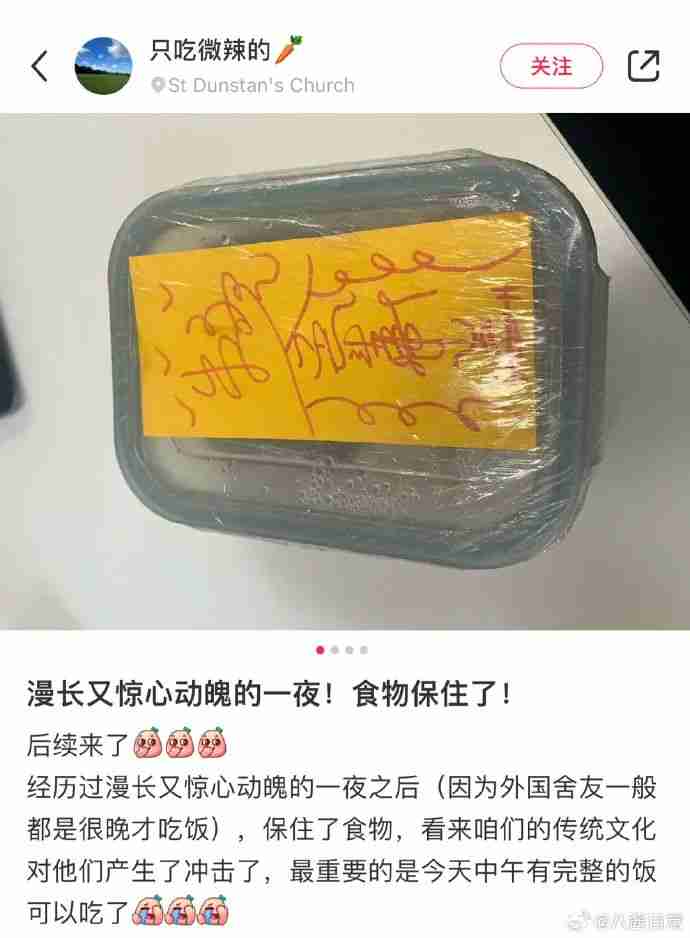 只吃微辣的🥕
St Dunstan's Church
关注
漫长又惊心动魄的一夜！食物保住了！
后续来了
经历过漫长又惊心动魄的一夜之后（因为外国舍友一般
都是很晚才吃饭），保住了食物，看来咱们的传统文化
对他们产生了冲击了，最重要的是今天中午有完整的饭
可以吃了